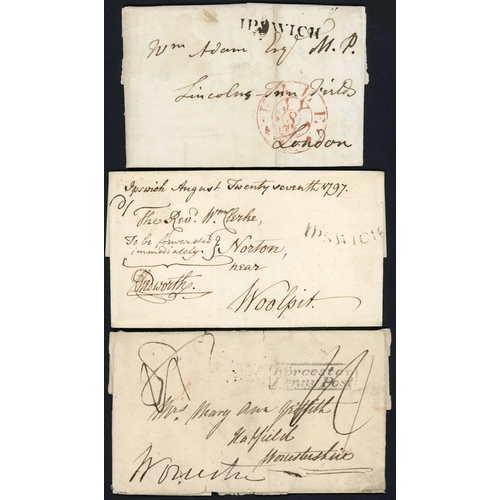 IPSWICH
Wm Adam Esqr M.P.
Lincolns Inn Fields
FREE
London
Ipswich August Twenty seventh 1797.
The Revd. Wm Clerke,
To be forwarded
immediately.
Norton,
IPSWICH
near
Woolpit.
Worcester
Penny Post
Mrs Mary Ann Griffith
Hatfield
Worcestershire
Worcester